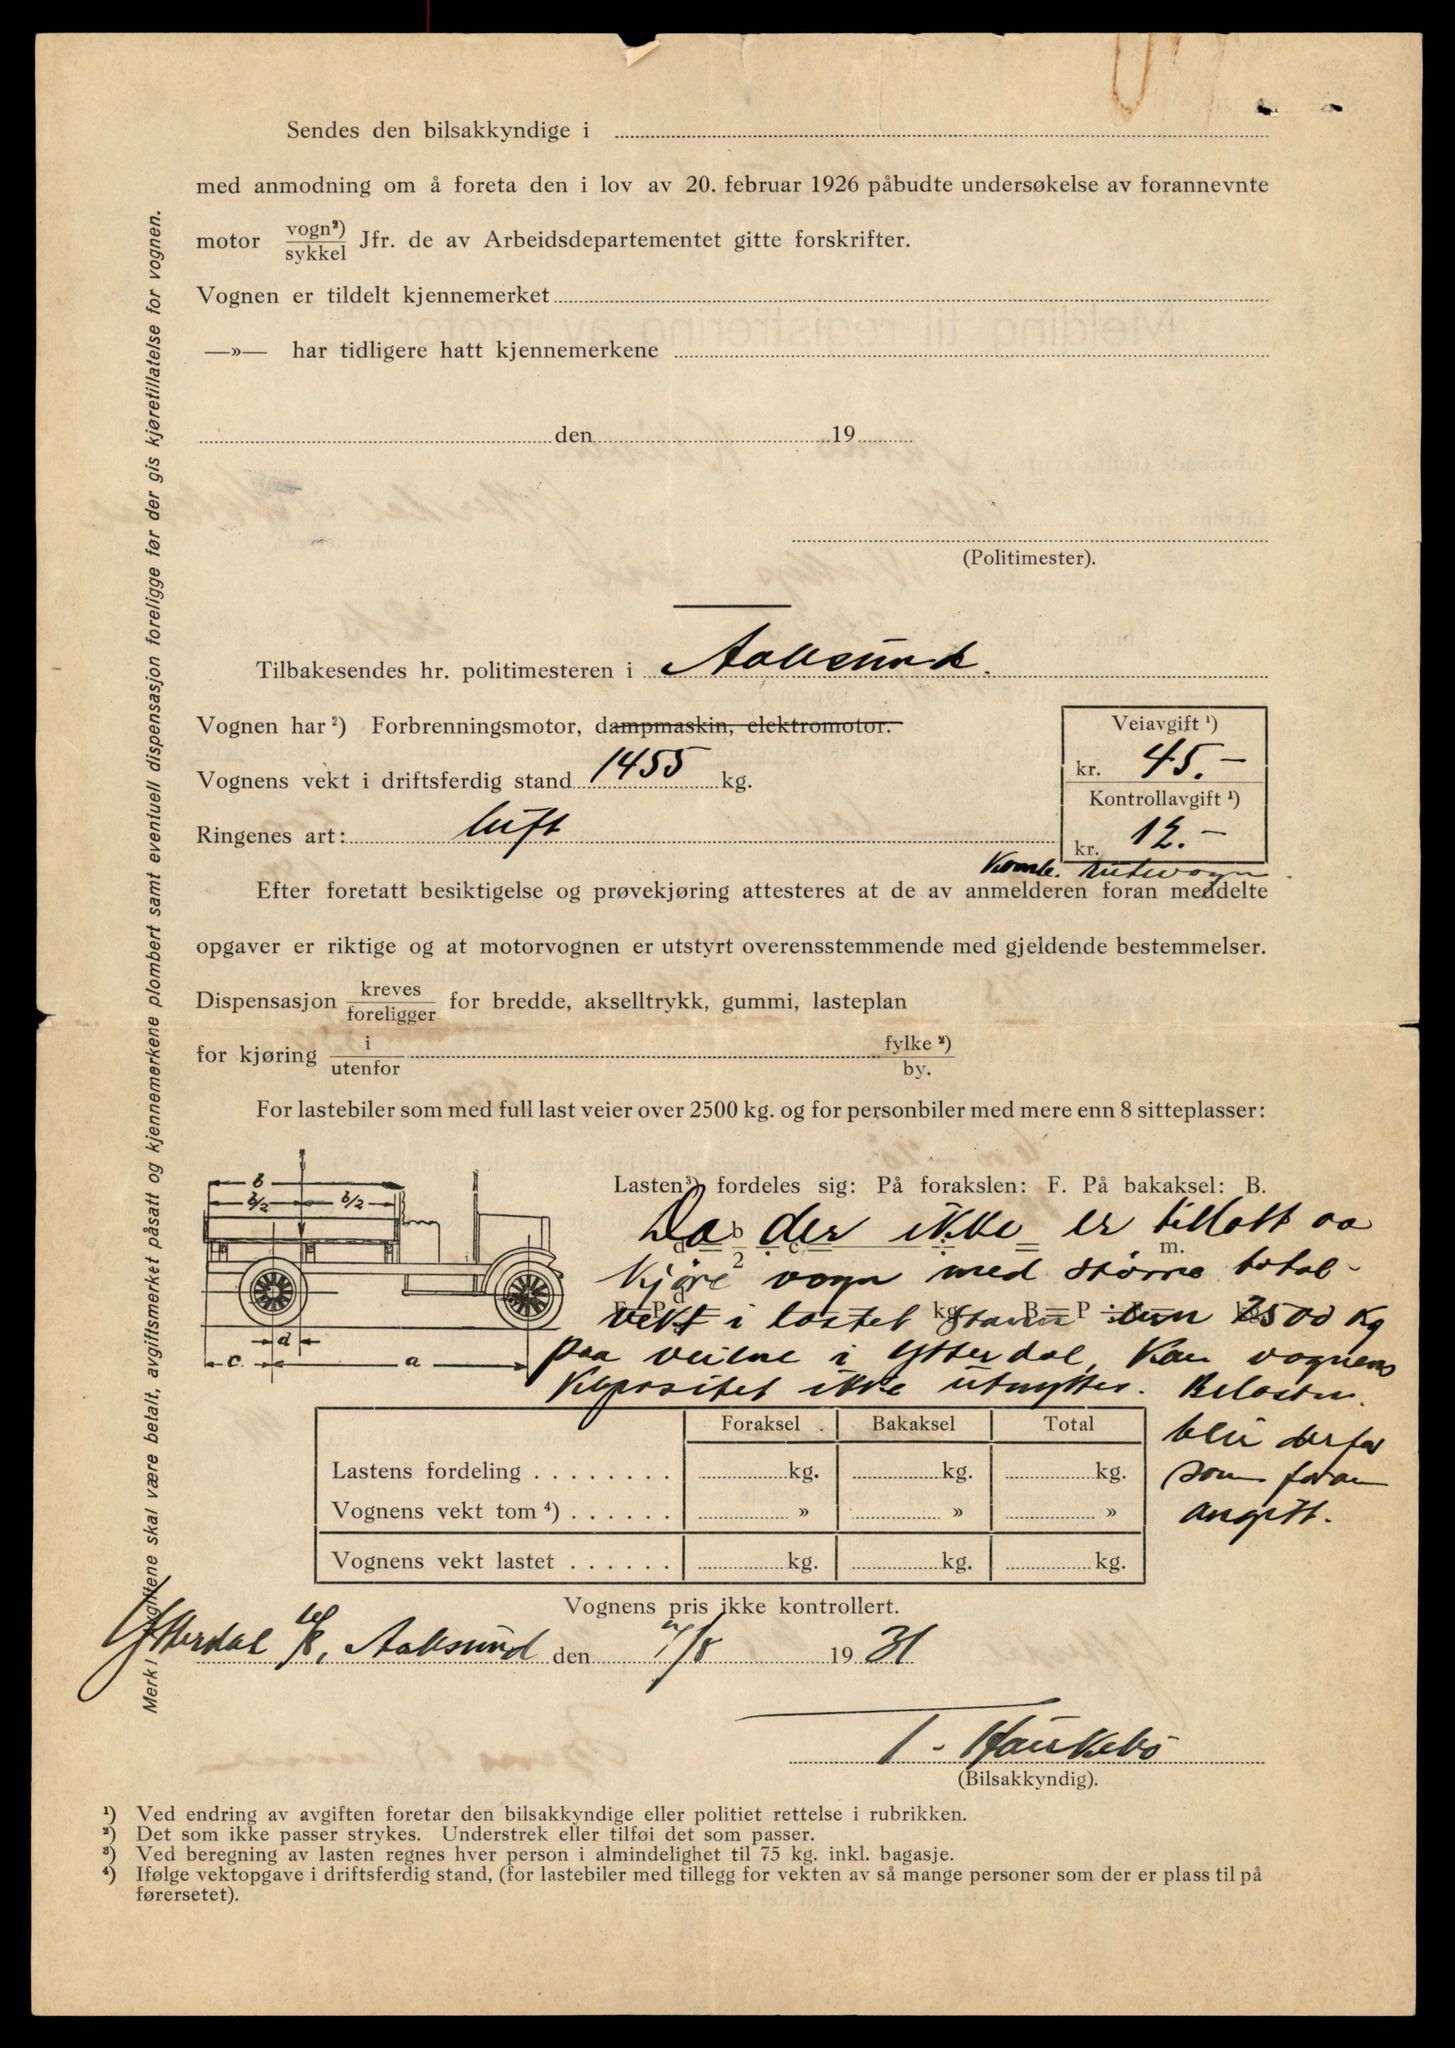 Sendes den bilsakkyndige i
med anmodning om å foreta den i lov av 20. februar 1926 påbudte undersøkelse av forannevnte
motor vogn²)/sykkel Jfr. de av Arbeidsdepartementet gitte forskrifter.
Vognen er tildelt kjennemerket
—»— har tidligere hatt kjennemerkene
den 19
(Politimester).
Tilbakesendes hr. politimesteren i Aalesund.
Vognen har ²) Forbrenningsmotor, dampmaskin, elektromotor.
Veiavgift ¹)
kr. 45.-
Vognens vekt i driftsferdig stand 1455 kg.
Kontrollavgift ¹)
kr. 12.-
Ringenes art: luft
Komb. rutevogn.
Efter foretatt besiktigelse og prøvekjøring attesteres at de av anmelderen foran meddelte
opgaver er riktige og at motorvognen er utstyrt overensstemmende med gjeldende bestemmelser.
Dispensasjon kreves/foreligger for bredde, akselltrykk, gummi, lasteplan
for kjøring i/utenfor fylke ²)/by.
For lastebiler som med full last veier over 2500 kg. og for personbiler med mere enn 8 sitteplasser:
b
b/2 b/2
d
c a
Lasten³) fordeles sig: På forakslen: F. På bakaksel: B.
Da der ikke er tillatt aa
kjøre vogn med større total-
vekt i lastet stann enn 2500 kg
paa veiene i Ytterdal, kan vognens
kapasitet ikke utnyttes. Belasten.
blir derfor
som foran
angitt.
Foraksel Bakaksel Total
Lastens fordeling . . . . . . . . kg. kg. kg.
Vognens vekt tom ⁴) . . . . . . » » »
Vognens vekt lastet . . . . . . kg. kg. kg.
Vognens pris ikke kontrollert.
Ytterdal, Aalesund den 7/8 1931
T. Haukebø
(Bilsakkyndig).
¹) Ved endring av avgiften foretar den bilsakkyndige eller politiet rettelse i rubrikken.
²) Det som ikke passer strykes. Understrek eller tilføi det som passer.
³) Ved beregning av lasten regnes hver person i almindelighet til 75 kg. inkl. bagasje.
⁴) Ifølge vektopgave i driftsferdig stand, (for lastebiler med tillegg for vekten av så mange personer som der er plass til på
førersetet).
Merk! Avgiftene skal være betalt, avgiftsmerket påsatt og kjennemerkene plombert samt eventuell dispensasjon foreligge før der gis kjøretillatelse for vognen.